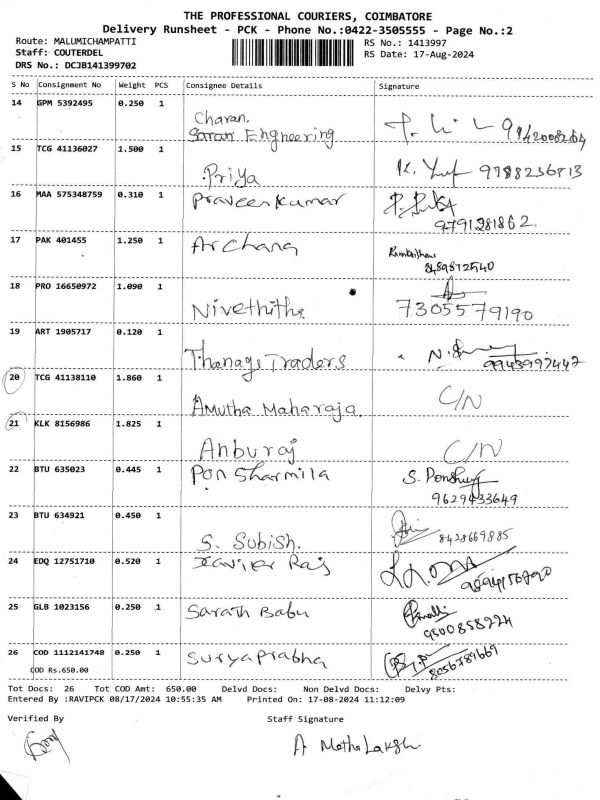 THE PROFESSIONAL COURIERS, COIMBATORE
Delivery Runsheet - PCK - Phone No.:0422-3505555 - Page No.:2
Route: MALUMICHAMPATTI
RS No.: 1413997
Staff: COUTERDEL
RS Date: 17-Aug-2024
DRS No.: DCJB141399702
S No Consignment No Weight PCS Consignee Details Signature
14 GPM 5392495 0.250 1
Charan.
Saran Engineering
15 TCG 41136027 1.500 1
Priya 9788236813
16 MAA 575348759 0.310 1 Praveen Kumar
9791281862.
17 PAK 401455 1.250 1 Archana
8489872540
18 PRO 16650972 1.090 1
Nivethitha 7305579190
19 ART 1905717 0.120 1
Thanage Traders 9943997447
20 TCG 41138110 1.860 1
Amutha Maharaja. C/N
21 KLK 8156986 1.825 1
Anburaj C/N
22 BTU 635023 0.445 1 Pon Sharmila
9629433649
23 BTU 634921 0.450 1
S. Subish. 8428669885
24 EDQ 12751710 0.520 1 Xavier Raj
25 GLB 1023156 0.250 1 Sarath Babu
9500858224
26 COD 1112141748 0.250 1 Suryaprabha
8056789669
COD Rs.650.00
Tot Docs: 26 Tot COD Amt: 650.00 Delvd Docs: Non Delvd Docs: Delvy Pts:
Entered By :RAVIPCK 08/17/2024 10:55:35 AM Printed On: 17-08-2024 11:12:09
Verified By Staff Signature